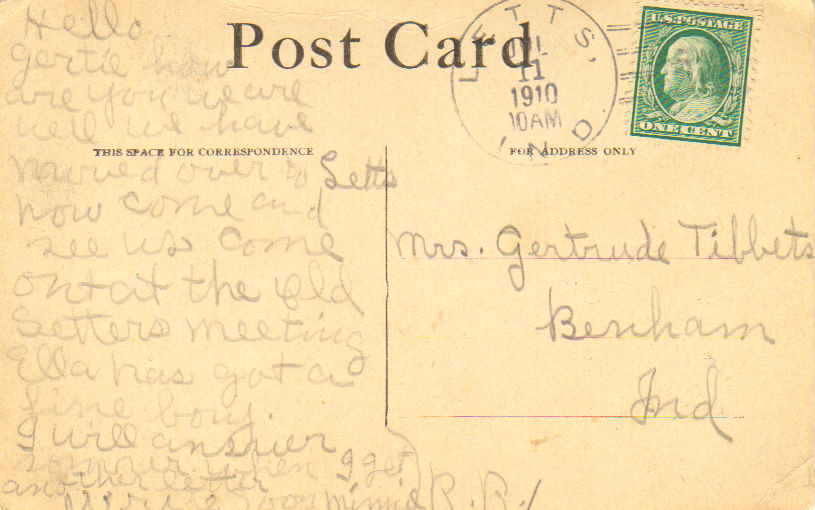 Post Card
THIS SPACE FOR CORRESPONDENCE
Hello
Gertie how
are you we are
well we have
moved over to Letts
now come and
see us come
ontat the old
Setters meeting
Ella has got a
fine boy.
I will answer
sooner when I get
another letter
R.R.1
LETTS, IND.
JUL
11
1910
10AM
U.S. POSTAGE
ONE CENT
FOR ADDRESS ONLY
Mrs. Gertrude Tibbets
Benham
Ind